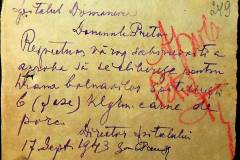 Spitalul Domanevca
249
Domnule Pretor
Respectuos vă rog să binevoiți a
aproba să se elibereze pentru
hrana bolnavilor
6 (șase) klgm. carne de
porc.
Director Spitalului
17 Sept. 1943